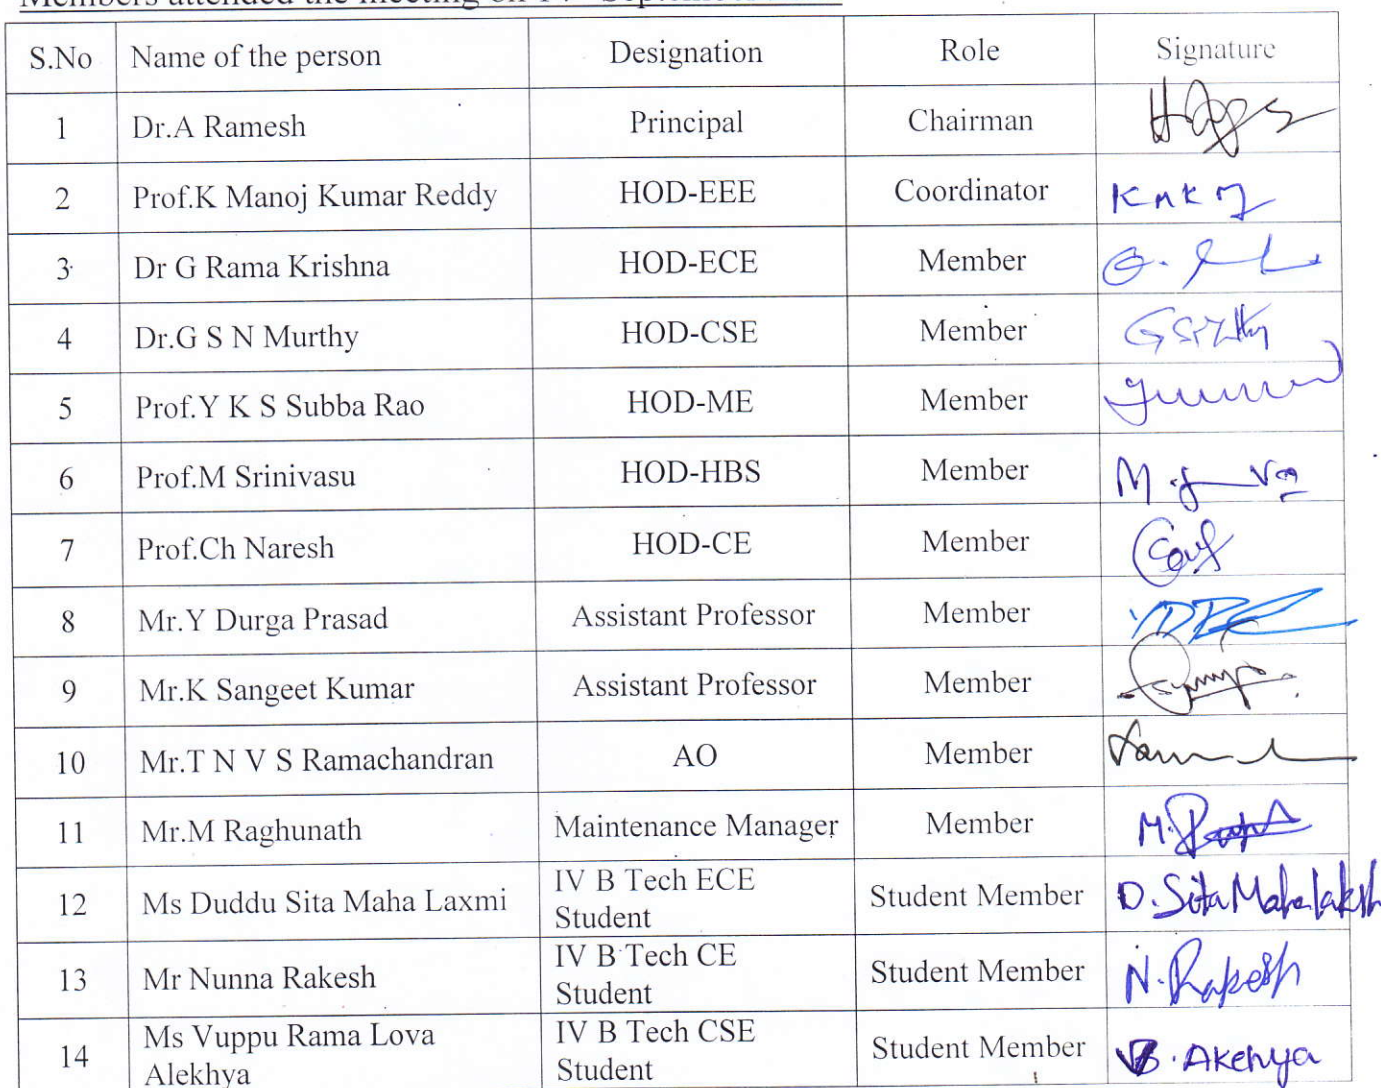 Members attended the meeting on
S.No Name of the person Designation Role Signature
1 Dr.A Ramesh Principal Chairman
2 Prof.K Manoj Kumar Reddy HOD-EEE Coordinator
3 Dr G Rama Krishna HOD-ECE Member
4 Dr.G S N Murthy HOD-CSE Member
5 Prof.Y K S Subba Rao HOD-ME Member
6 Prof.M Srinivasu HOD-HBS Member
7 Prof.Ch Naresh HOD-CE Member
8 Mr.Y Durga Prasad Assistant Professor Member
9 Mr.K Sangeet Kumar Assistant Professor Member
10 Mr.T N V S Ramachandran AO Member
11 Mr.M Raghunath Maintenance Manager Member
12 Ms Duddu Sita Maha Laxmi IV B Tech ECE
Student Student Member D.Sita Mahalaksh
13 Mr Nunna Rakesh IV B Tech CE
Student Student Member N.Rakesh
14 Ms Vuppu Rama Lova
Alekhya IV B Tech CSE
Student Student Member Akehya